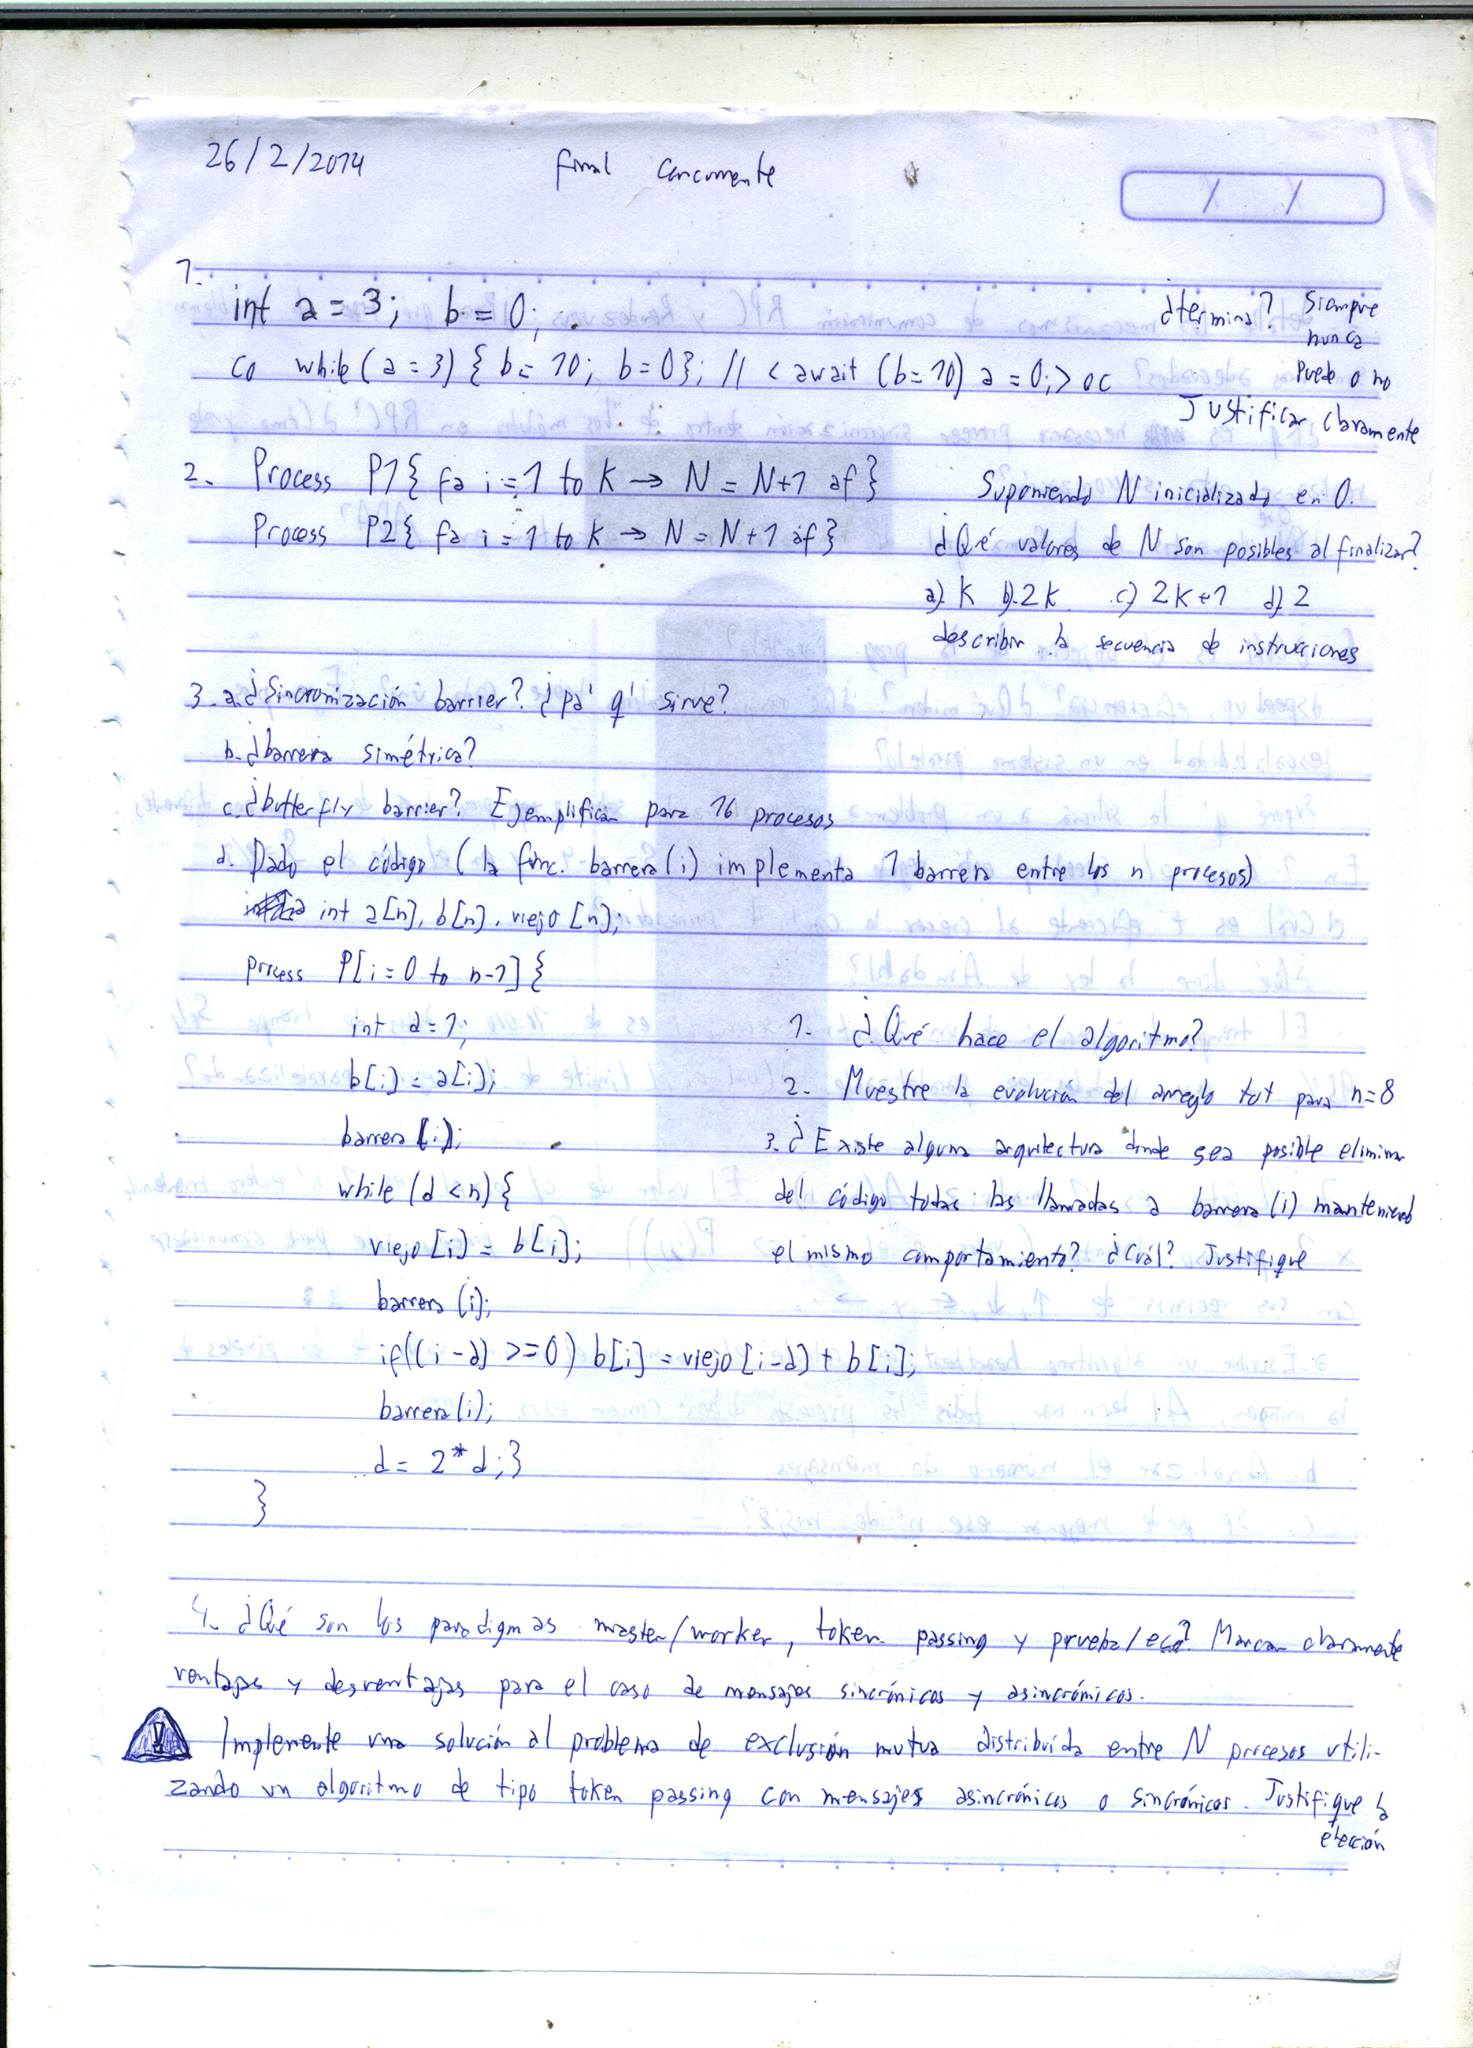 26/2/2014 final concurrente
/ /
1.
int a = 3; b = 0;
co while (a = 3) { b = 10; b = 0}; // < await (b = 10) a = 0; > oc
¿termina? Siempre
nunca
Puede o no
Justificar claramente
2. Process P1{ fa i = 1 to k → N = N+1 af }
Process P2{ fa i = 1 to k → N = N+1 af }
Suponiendo N inicializado en 0.
¿Qué valores de N son posibles al finalizar?
a) k b) 2k c) 2k+1 d) 2
describir la secuencia de instrucciones
3. a. ¿Sincronización barrier? ¿pa' q' sirve?
b. ¿barrera simétrica?
c. ¿butterfly barrier? Ejemplificar para 16 procesos
d. Dado el código (la func. barrera(i) implementa 1 barrera entre los n procesos)
int a[n], b[n], viejo[n];
process P[i = 0 to n-1] {
int d = 1;
b[i] = a[i];
barrera(i);
while (d < n) {
viejo[i] = b[i];
barrera(i);
if((i - d) >= 0) b[i] = viejo[i-d] + b[i];
barrera(i);
d = 2*d; }
}
1. ¿Qué hace el algoritmo?
2. Muestre la evolución del arreglo tot para n=8
3. ¿Existe alguna arquitectura donde sea posible eliminar
del código todas las llamadas a barrera(i) manteniendo
el mismo comportamiento? ¿Cuál? Justifique
4. ¿Qué son los paradigmas master/worker, token passing y prueba/eco? Marcar claramente
ventajas y desventajas para el caso de mensajes sincrónicos y asincrónicos.
! Implemente una solución al problema de exclusión mutua distribuída entre N procesos utili-
zando un algoritmo de tipo token passing con mensajes asincrónicos o sincrónicos. Justifique la
elección